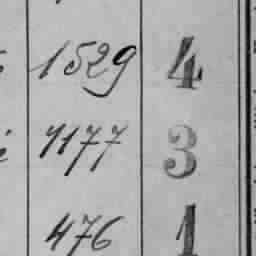 1529 4
1177 3
476 1